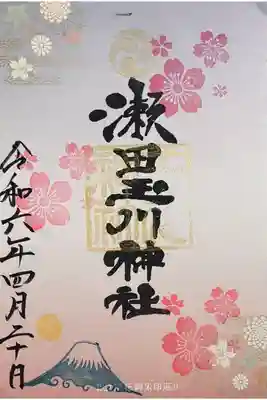 瀬田玉川神社
令和六年四月二十日